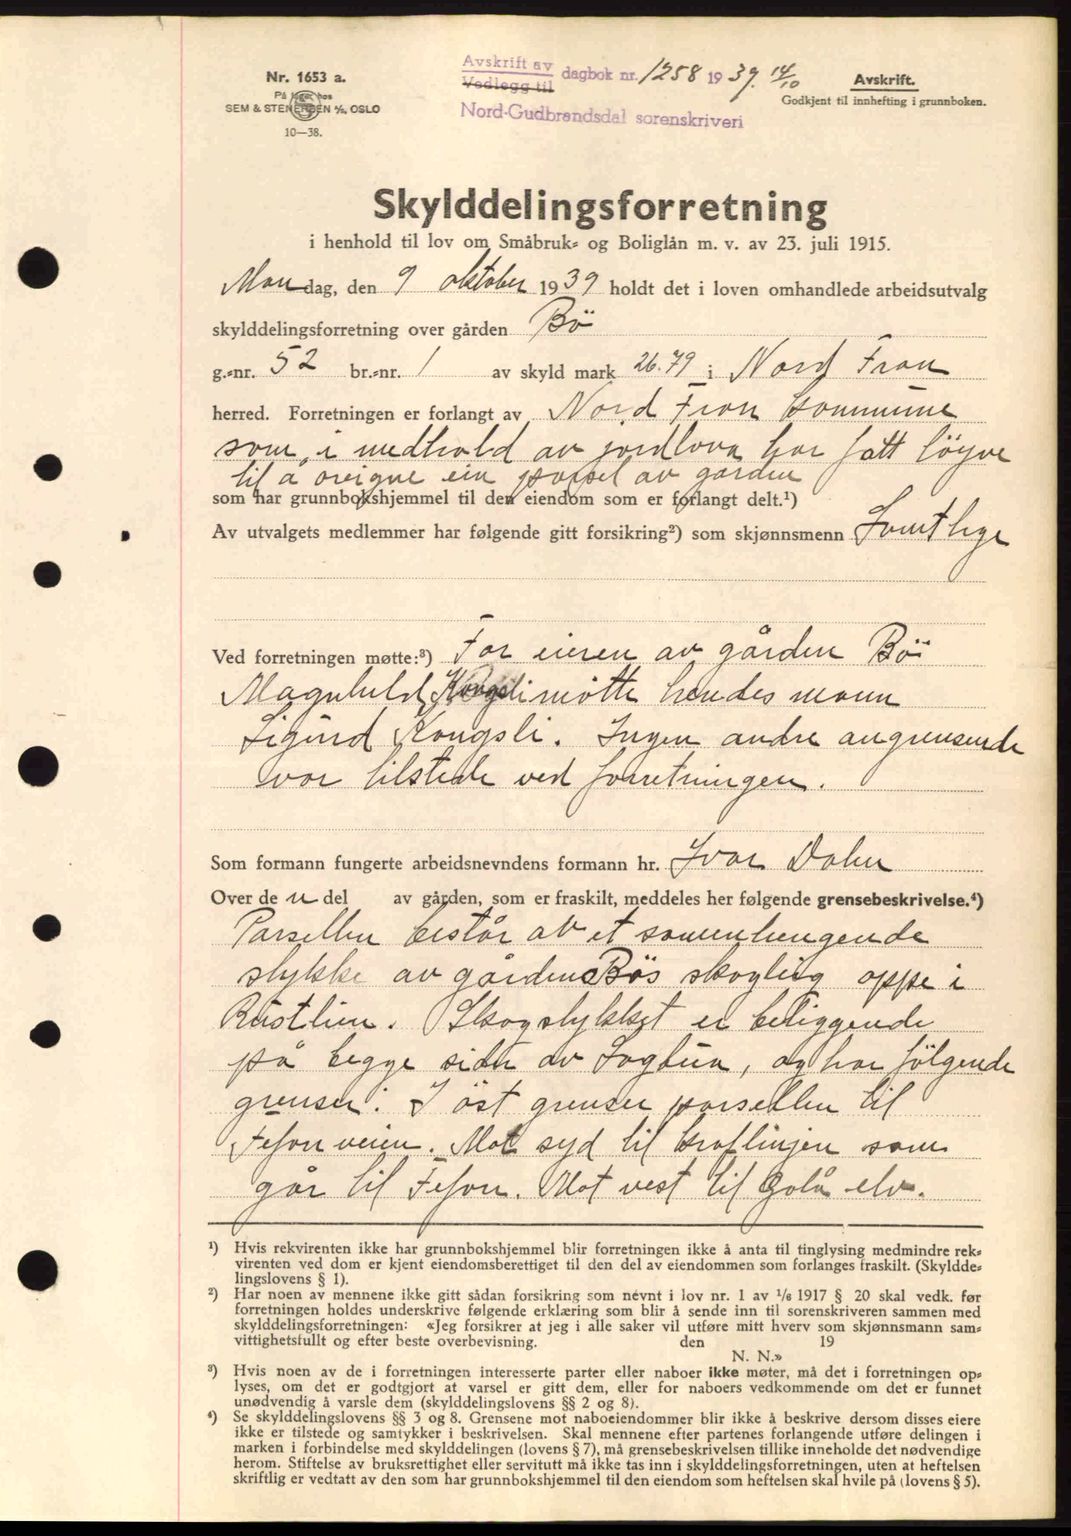 Nr. 1653 a.
På lager hos
SEM & STENERSEN A/S, OSLO
10—38.
Avskrift av
Vedlegg til
dagbok nr. 1258 1939. 14/10
Nord-Gudbrandsdal sorenskriveri
Avskrift.
Godkjent til innhefting i grunnboken.
Skylddelingsforretning
i henhold til lov om Småbruk= og Boliglån m. v. av 23. juli 1915.
Mandag, den 9 oktober 1939 holdt det i loven omhandlede arbeidsutvalg
skylddelingsforretning over gården Bö
g.=nr. 52 br.=nr. 1 av skyld mark 26.79 i Nord Fron
herred. Forretningen er forlangt av Nord Fron kommune
som i medhold av jordlova har fått löyve
til å oreigne ein parsel av garden
som har grunnbokshjemmel til den eiendom som er forlangt delt.¹)
Av utvalgets medlemmer har følgende gitt forsikring²) som skjønnsmenn Samtlige
Ved forretningen møtte:³) For eieren av gården Bö
Magnhild Kongsli mötte hendes mann
Sigurd Kongsli. Ingen andre angrensende
var tilstede ved forretningen.
Som formann fungerte arbeidsnevndens formann hr. Ivar Dalen
Over de n del av gården, som er fraskilt, meddeles her følgende grensebeskrivelse.⁴)
Parsellen består av et sammenhengende
stykke av gårdens Bös skoglieg oppe i
Rustlien. Skogstykket er beliggende
på begge sider av Sagbua, og har fölgende
grenser: I öst grenser parsellen til
Feforveien. Mot syd til kraftlinjen som
går til Fefor. Mot vest til Golå elv.
¹) Hvis rekvirenten ikke har grunnbokshjemmel blir forretningen ikke å anta til tinglysing medmindre rek=
virenten ved dom er kjent eiendomsberettiget til den del av eiendommen som forlanges fraskilt. (Skyldde=
lingslovens § 1).
²) Har noen av mennene ikke gitt sådan forsikring som nevnt i lov nr. 1 av 1/6 1917 § 20 skal vedk. før
forretningen holdes underskrive følgende erklæring som blir å sende inn til sorenskriveren sammen med
skylddelingsforretningen: «Jeg forsikrer at jeg i alle saker vil utføre mitt hverv som skjønnsmann sam=
vittighetsfullt og efter beste overbevisning. den 19
N. N.»
³) Hvis noen av de i forretningen interesserte parter eller naboer ikke møter, må det i forretningen op=
lyses, om det er godtgjort at varsel er gitt dem, eller for naboers vedkommende om det er funnet
unødvendig å varsle dem (skylddelingslovens §§ 2 og 8).
⁴) Se skylddelingslovens §§ 3 og 8. Grensene mot naboeiendommer blir ikke å beskrive dersom disses eiere
ikke er tilstede og samtykker i beskrivelsen. Skal mennene efter partenes forlangende utføre delingen i
marken i forbindelse med skylddelingen (lovens § 7), må grensebeskrivelsen tillike inneholde det nødvendige
herom. Stiftelse av bruksrettighet eller servitutt må ikke tas inn i skylddelingsforretningen, uten at heftelsen
skriftlig er vedtatt av den som har grunnbokshjemmel til den eiendom som heftelsen skal hvile på (lovens § 5).